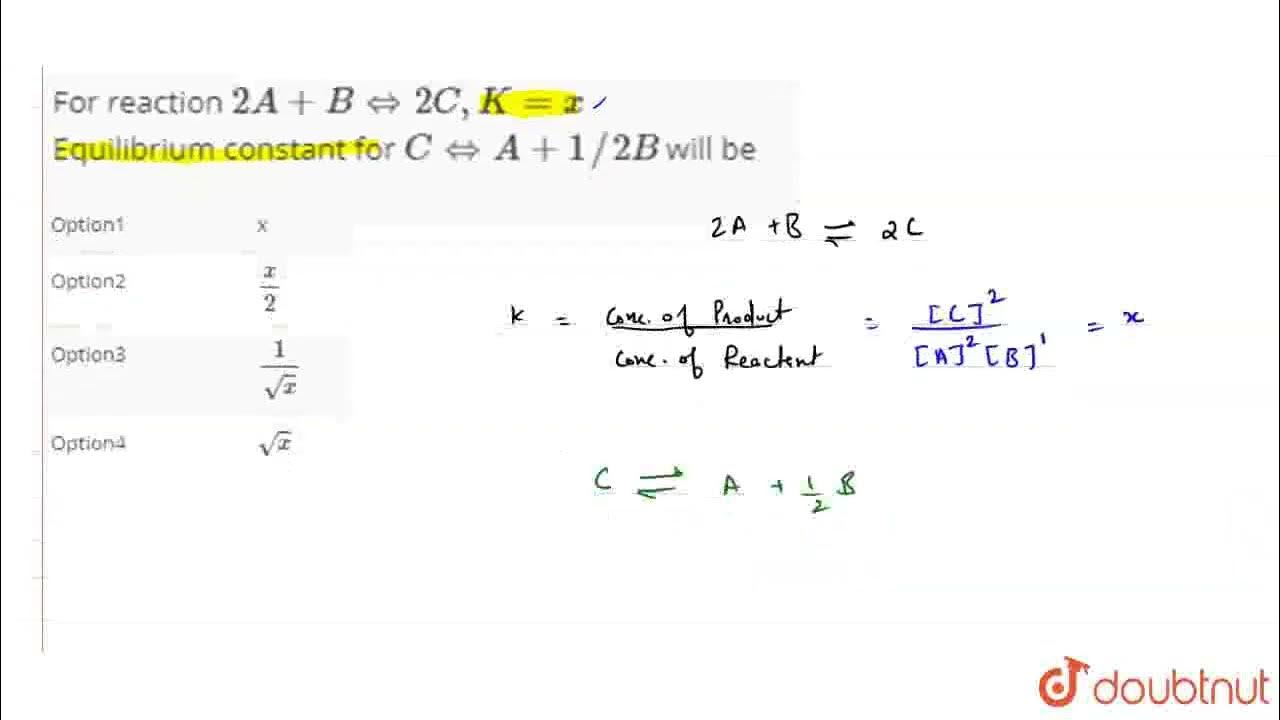 For reaction 2A + B ⇔ 2C, K = x
Equilibrium constant for C ⇔ A + 1/2B will be
Option1 x
Option2 x/2
Option3 1/√x
Option4 √x
2A + B ⇌ 2C
K = Conc. of Product / Conc. of Reactent = [C]² / [A]² [B]¹ = x
C ⇌ A + 1/2 B
doubtnut